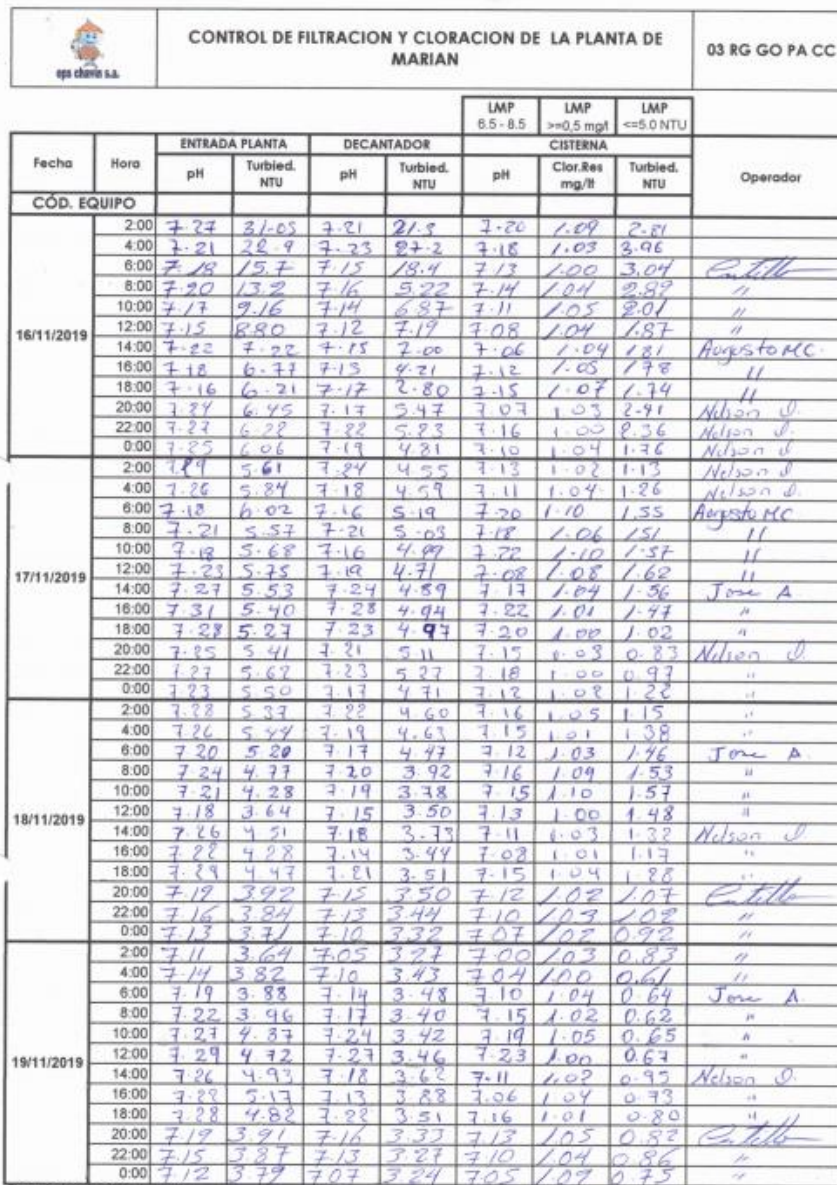 eps chavin s.a.
CONTROL DE FILTRACION Y CLORACION DE LA PLANTA DE MARIAN
03 RG GO PA CC
LMP LMP LMP
6.5 - 8.5 >=0,5 mg/l <=5.0 NTU
ENTRADA PLANTA DECANTADOR CISTERNA
Fecha Hora pH Turbied. NTU pH Turbied. NTU pH Clor.Res mg/lt Turbied. NTU Operador
CÓD. EQUIPO
16/11/2019
2:00 7.27 31.05 7.21 21.3 7.20 1.09 2.81
4:00 7.21 22.9 7.23 27.2 7.18 1.03 3.96
6:00 7.18 15.7 7.15 18.4 7.13 1.00 3.04
8:00 7.20 13.2 7.16 5.22 7.14 1.04 2.89 "
10:00 7.17 9.16 7.14 6.87 7.11 1.05 2.01 "
12:00 7.15 8.80 7.12 7.19 7.08 1.04 1.87 "
14:00 7.22 7.22 7.15 7.00 7.06 1.04 1.81 Augusto MC.
16:00 7.18 6.77 7.13 4.21 7.12 1.05 1.78 "
18:00 7.16 6.21 7.17 2.80 7.15 1.07 1.74 "
20:00 7.24 6.45 7.17 5.47 7.07 1.03 2.41 Nelson
22:00 7.27 6.22 7.22 5.23 7.16 1.00 2.36 Nelson
0:00 7.25 6.06 7.19 4.81 7.10 1.04 1.76 Nelson
17/11/2019
2:00 7.29 5.61 7.24 4.55 7.13 1.02 1.13 Nelson
4:00 7.26 5.84 7.18 4.59 7.11 1.04 1.26 Nelson
6:00 7.18 6.02 7.16 5.19 7.20 1.10 1.55 Augusto MC
8:00 7.21 5.57 7.21 5.03 7.18 1.06 1.51 "
10:00 7.19 5.68 7.16 4.99 7.22 1.10 1.57 "
12:00 7.23 5.75 7.19 4.71 7.08 1.08 1.62 "
14:00 7.27 5.53 7.24 4.89 7.17 1.04 1.56 Jose A
16:00 7.31 5.40 7.28 4.94 7.22 1.01 1.47 "
18:00 7.28 5.27 7.23 4.97 7.20 1.00 1.02 "
20:00 7.25 5.41 7.21 5.11 7.15 1.03 0.83 Nelson
22:00 7.27 5.62 7.23 5.27 7.18 1.00 0.97 "
0:00 7.23 5.50 7.17 4.71 7.12 1.02 1.22 "
18/11/2019
2:00 7.28 5.37 7.22 4.60 7.16 1.05 1.15 "
4:00 7.26 5.44 7.19 4.63 7.15 1.01 1.38 "
6:00 7.20 5.20 7.17 4.47 7.12 1.03 1.46 Jose A.
8:00 7.24 4.77 7.20 3.92 7.16 1.09 1.53 "
10:00 7.21 4.28 7.19 3.78 7.15 1.10 1.57 "
12:00 7.18 3.64 7.15 3.50 7.13 1.00 1.48 "
14:00 7.26 4.51 7.18 3.73 7.11 1.03 1.32 Nelson
16:00 7.22 4.28 7.14 3.44 7.08 1.01 1.17 "
18:00 7.29 4.47 7.21 3.51 7.15 1.04 1.28 "
20:00 7.19 3.92 7.15 3.50 7.12 1.02 1.07
22:00 7.16 3.84 7.13 3.44 7.10 1.03 1.02 "
0:00 7.13 3.71 7.10 3.32 7.07 1.02 0.92 "
19/11/2019
2:00 7.11 3.64 7.05 3.27 7.00 1.03 0.83 "
4:00 7.14 3.82 7.10 3.43 7.04 1.00 0.61 "
6:00 7.19 3.88 7.14 3.48 7.10 1.04 0.64 Jose A.
8:00 7.22 3.96 7.17 3.40 7.15 1.02 0.62 "
10:00 7.27 4.37 7.24 3.42 7.19 1.05 0.65 "
12:00 7.29 4.72 7.27 3.46 7.23 1.00 0.67 "
14:00 7.26 4.93 7.18 3.62 7.11 1.02 0.95 Nelson
16:00 7.22 5.17 7.13 3.88 7.06 1.04 0.73 "
18:00 7.28 4.82 7.22 3.51 7.16 1.01 0.80 "
20:00 7.19 3.91 7.16 3.33 7.13 1.05 0.82
22:00 7.15 3.87 7.13 3.27 7.10 1.04 0.86 "
0:00 7.12 3.79 7.07 3.24 7.05 1.09 0.75 "